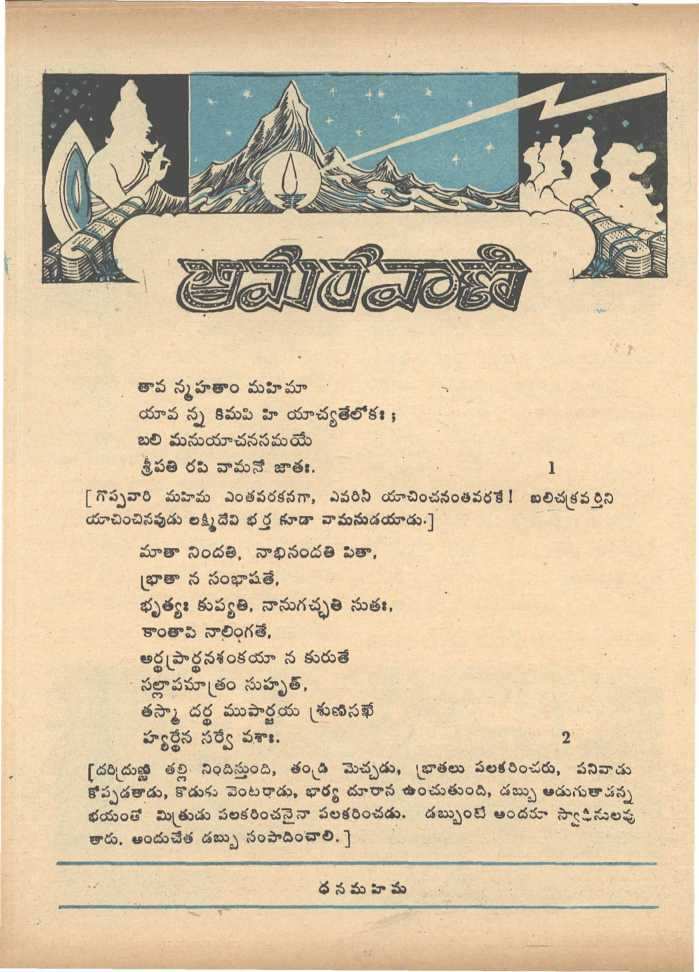 అమరవాణి
తావ న్మహతాం మహిమా
యావ న్న కిమపి హి యాచ్యతేలోకః ;
బలి మనుయాచనసమయే
శ్రీపతి రపి వామనో జాతః. 1
[ గొప్పవారి మహిమ ఎంతవరకనగా, ఎవరినీ యాచించనంతవరకే ! బలిచక్రవర్తిని
యాచించినపుడు లక్ష్మీదేవి భర్త కూడా వామనుడయాడు.]
మాతా నిందతి, నాభినందతి పితా,
భ్రాతా న సంభాషతే,
భృత్యః కుప్యతి, నానుగచ్ఛతి సుతః,
కాంతాపి నాలింగతే,
అర్థప్రార్థనశంకయా న కురుతే
సల్లాపమాత్రం సుహృత్,
తస్మా దర్థ ముపార్జయ శ్రుణిసఖే
హ్యర్థేన సర్వే వశాః. 2
[దరిద్రుణ్ణి తల్లి నిందిస్తుంది, తండ్రి మెచ్చడు, భ్రాతలు పలకరించరు, పనివాడు
కోప్పడతాడు, కొడుకు వెంటరాడు, భార్య దూరాన ఉంచుతుంది, డబ్బు అడుగుతాడన్న
భయంతో మిత్రుడు పలకరించనైనా పలకరించడు. డబ్బుంటే అందరూ స్వాధీనులవు
తారు. అందుచేత డబ్బు సంపాదించాలి. ]
ధనమహిమ